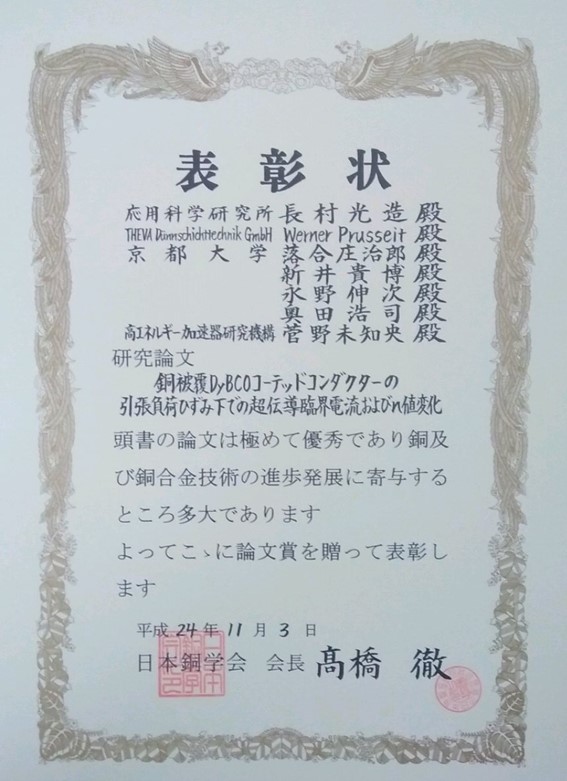 表彰状
応用科学研究所 長村光造 殿
THEVA Dünnschichttechnik GmbH Werner Prusseit 殿
京都大学 落合庄治郎 殿
新井貴博 殿
永野伸次 殿
奥田浩司 殿
高エネルギー加速器研究機構 菅野未知央 殿
研究論文
銅被覆DyBCOコーテッドコンダクターの
引張負荷ひずみ下での超伝導臨界電流およびn値変化
頭書の論文は極めて優秀であり銅及
び銅合金技術の進歩発展に寄与する
ところ多大であります
よってこゝに論文賞を贈って表彰し
ます
平成 24 年 11 月 3 日
日本銅学会 会長 髙橋 徹